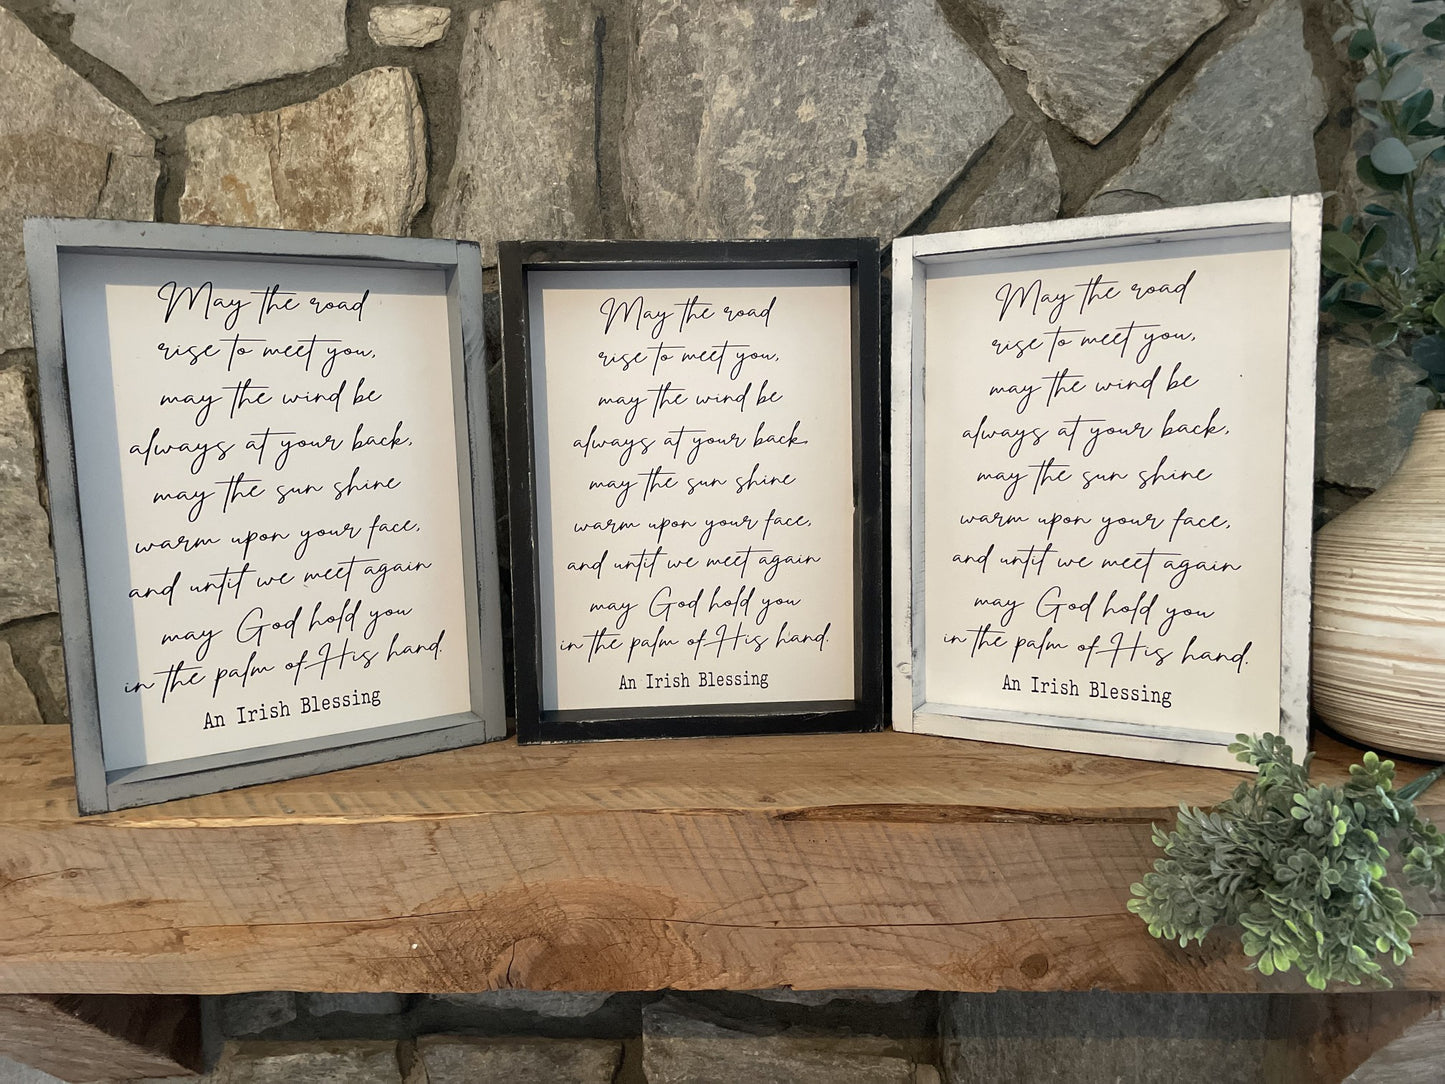 May the road
rise to meet you,
may the wind be
always at your back,
may the sun shine
warm upon your face,
and until we meet again
may God hold you
in the palm of His hand.
An Irish Blessing
May the road
rise to meet you,
may the wind be
always at your back,
may the sun shine
warm upon your face,
and until we meet again
may God hold you
in the palm of His hand.
An Irish Blessing
May the road
rise to meet you,
may the wind be
always at your back,
may the sun shine
warm upon your face,
and until we meet again
may God hold you
in the palm of His hand.
An Irish Blessing